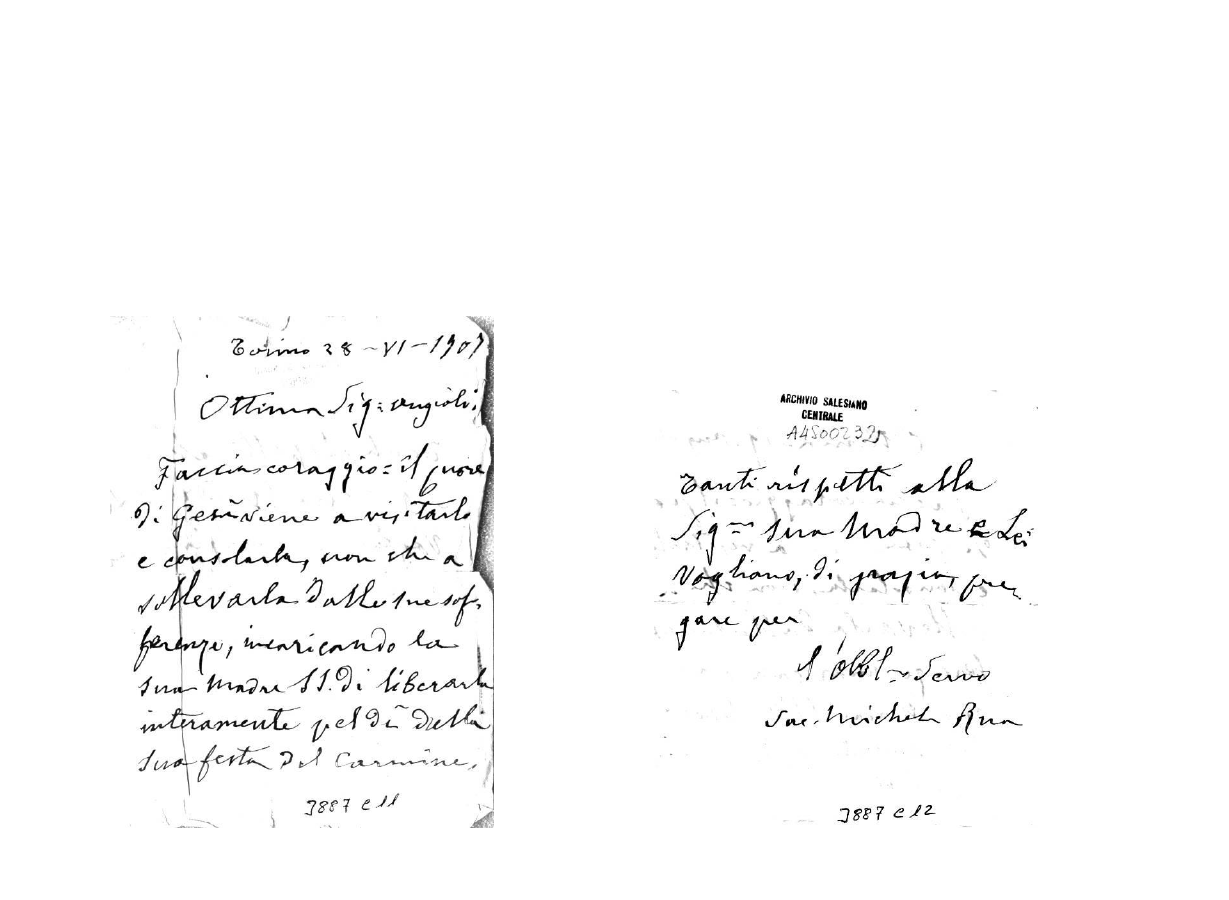 Torino 28-VI-1907
Ottima Sig:
Faccia coraggio: il cuore
di Gesù viene a visitarla
e consolarla, non che a
sollevarla dalle sue sof-
ferenze, incaricando la
sua Madre SS. di liberarla
interamente pel dì della
sua festa del Carmine.
3887 C 11
ARCHIVIO SALESIANO
CENTRALE
A4500232
Tanti rispetti alla
Sig.ra sua Madre e Lei
Vogliano, di grazia, pre-
gare per
l'obbl.mo Servo
Sac. Michele Rua
3887 C 12